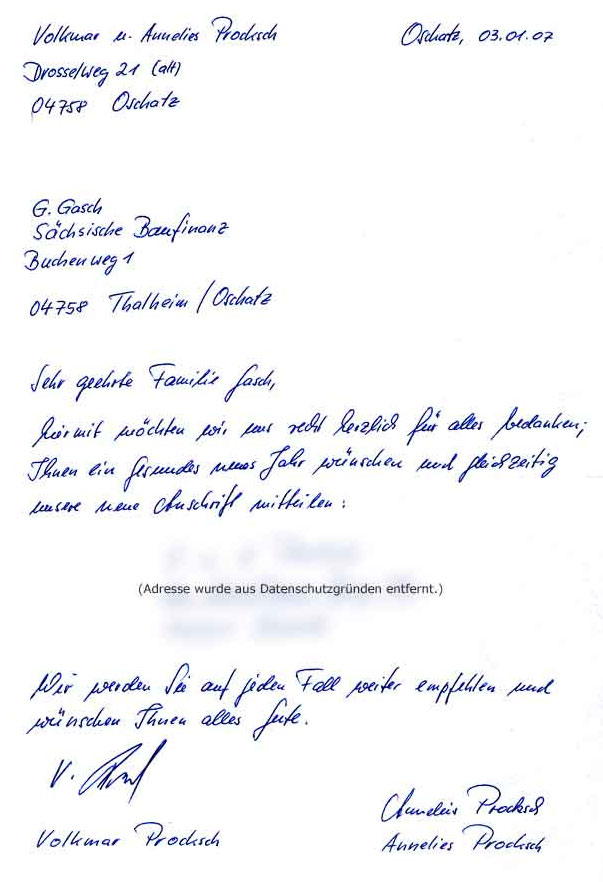 Volkmar u. Annelies Procksch
Oschatz, 03.01.07
Drosselweg 21 (alt)
04758 Oschatz
G. Gasch
Sächsische Baufinanz
Buchenweg 1
04758 Thalheim / Oschatz
Sehr geehrte Familie Gasch,
hiermit möchten wir uns recht herzlich für alles bedanken,
Ihnen ein gesundes neues Jahr wünschen und gleichzeitig
unsere neue Anschrift mitteilen:
(Adresse wurde aus Datenschutzgründen entfernt.)
Wir werden Sie auf jeden Fall weiter empfehlen und
wünschen Ihnen alles Gute.
V.
Annelies Procksch
Volkmar Procksch
Annelies Procksch